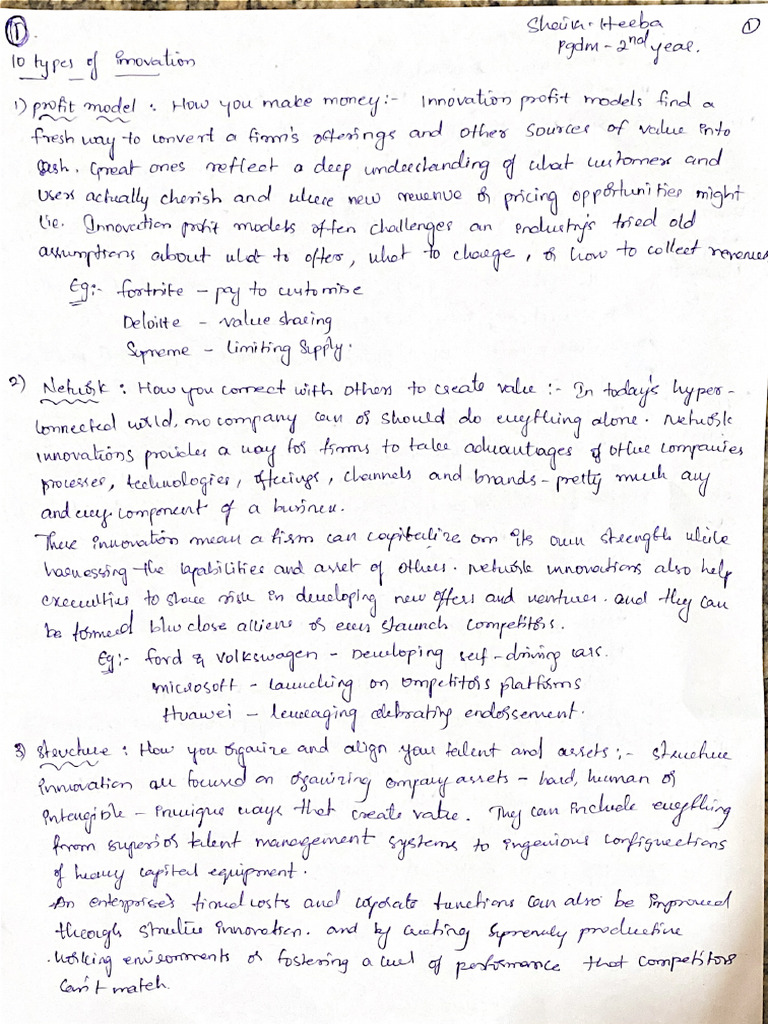 ①
Sheikh. Heeba
Pgdm - 2nd year.
①
10 types of innovation
1) profit model : How you make money:- Innovation profit models find a
fresh way to convert a firm's offerings and other sources of value into
cash. Great ones reflect a deep understanding of what customers and
users actually cherish and where new revenue or pricing opportunities might
lie. Innovation profit models often challenges an industry's tried old
assumptions about what to offer, what to charge, or how to collect revenues
Eg:- fortnite - pay to customise
Deloitte - value sharing
Supreme - Limiting supply.
2) Network : How you connect with others to create value :- In today's hyper-
connected world, no company can or should do everything alone. Network
innovations provides a way for firms to take advantages of other companies
processes, technologies, offerings, channels and brands - pretty much any
and every component of a business.
These innovation mean a firm can capitalize on its own strength while
harnessing the capabilities and asset of others. Network innovations also help
executies to share risk in developing new offers and ventures. and they can
be formed b/w close alliens or even staunch competitors.
Eg:- ford & volkswagen - Developing self-driving cars.
microsoft - launching on competitors platforms
Huawei - leveraging celebrating endorsement.
3) structure : How you organize and align your talent and assets :- structure
innovation are focused on organizing company assets - hard, human or
intangible - in unique ways that create value. They can include everything
from superior talent management systems to ingenious configurations
of heavy capital equipment.
An enterprise's fixed costs and corporate functions can also be improved
through structure innovation. and by creating supremely productive
working environments or fostering a level of performance that competitors
can't match.